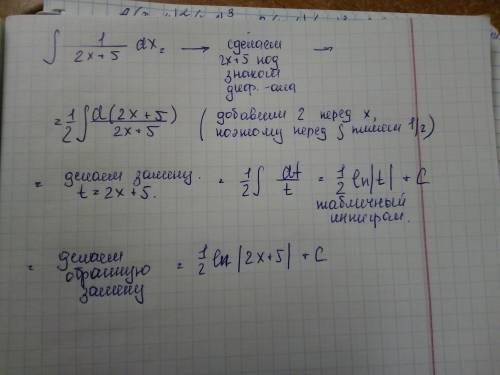 ∫ 1/(2x+5) dx = → сделаем →
2x+5 под
знаком
диф-ала
= 1/2 ∫ d(2x+5)/(2x+5) ( добавили 2 перед x,
поэтому перед ∫ пишем 1/2)
= делаем замену. = 1/2 ∫ dt/t = 1/2 ln|t| + C
t = 2x+5. табличный
интеграл.
= делаем = 1/2 ln |2x+5| + C
обратную
замену